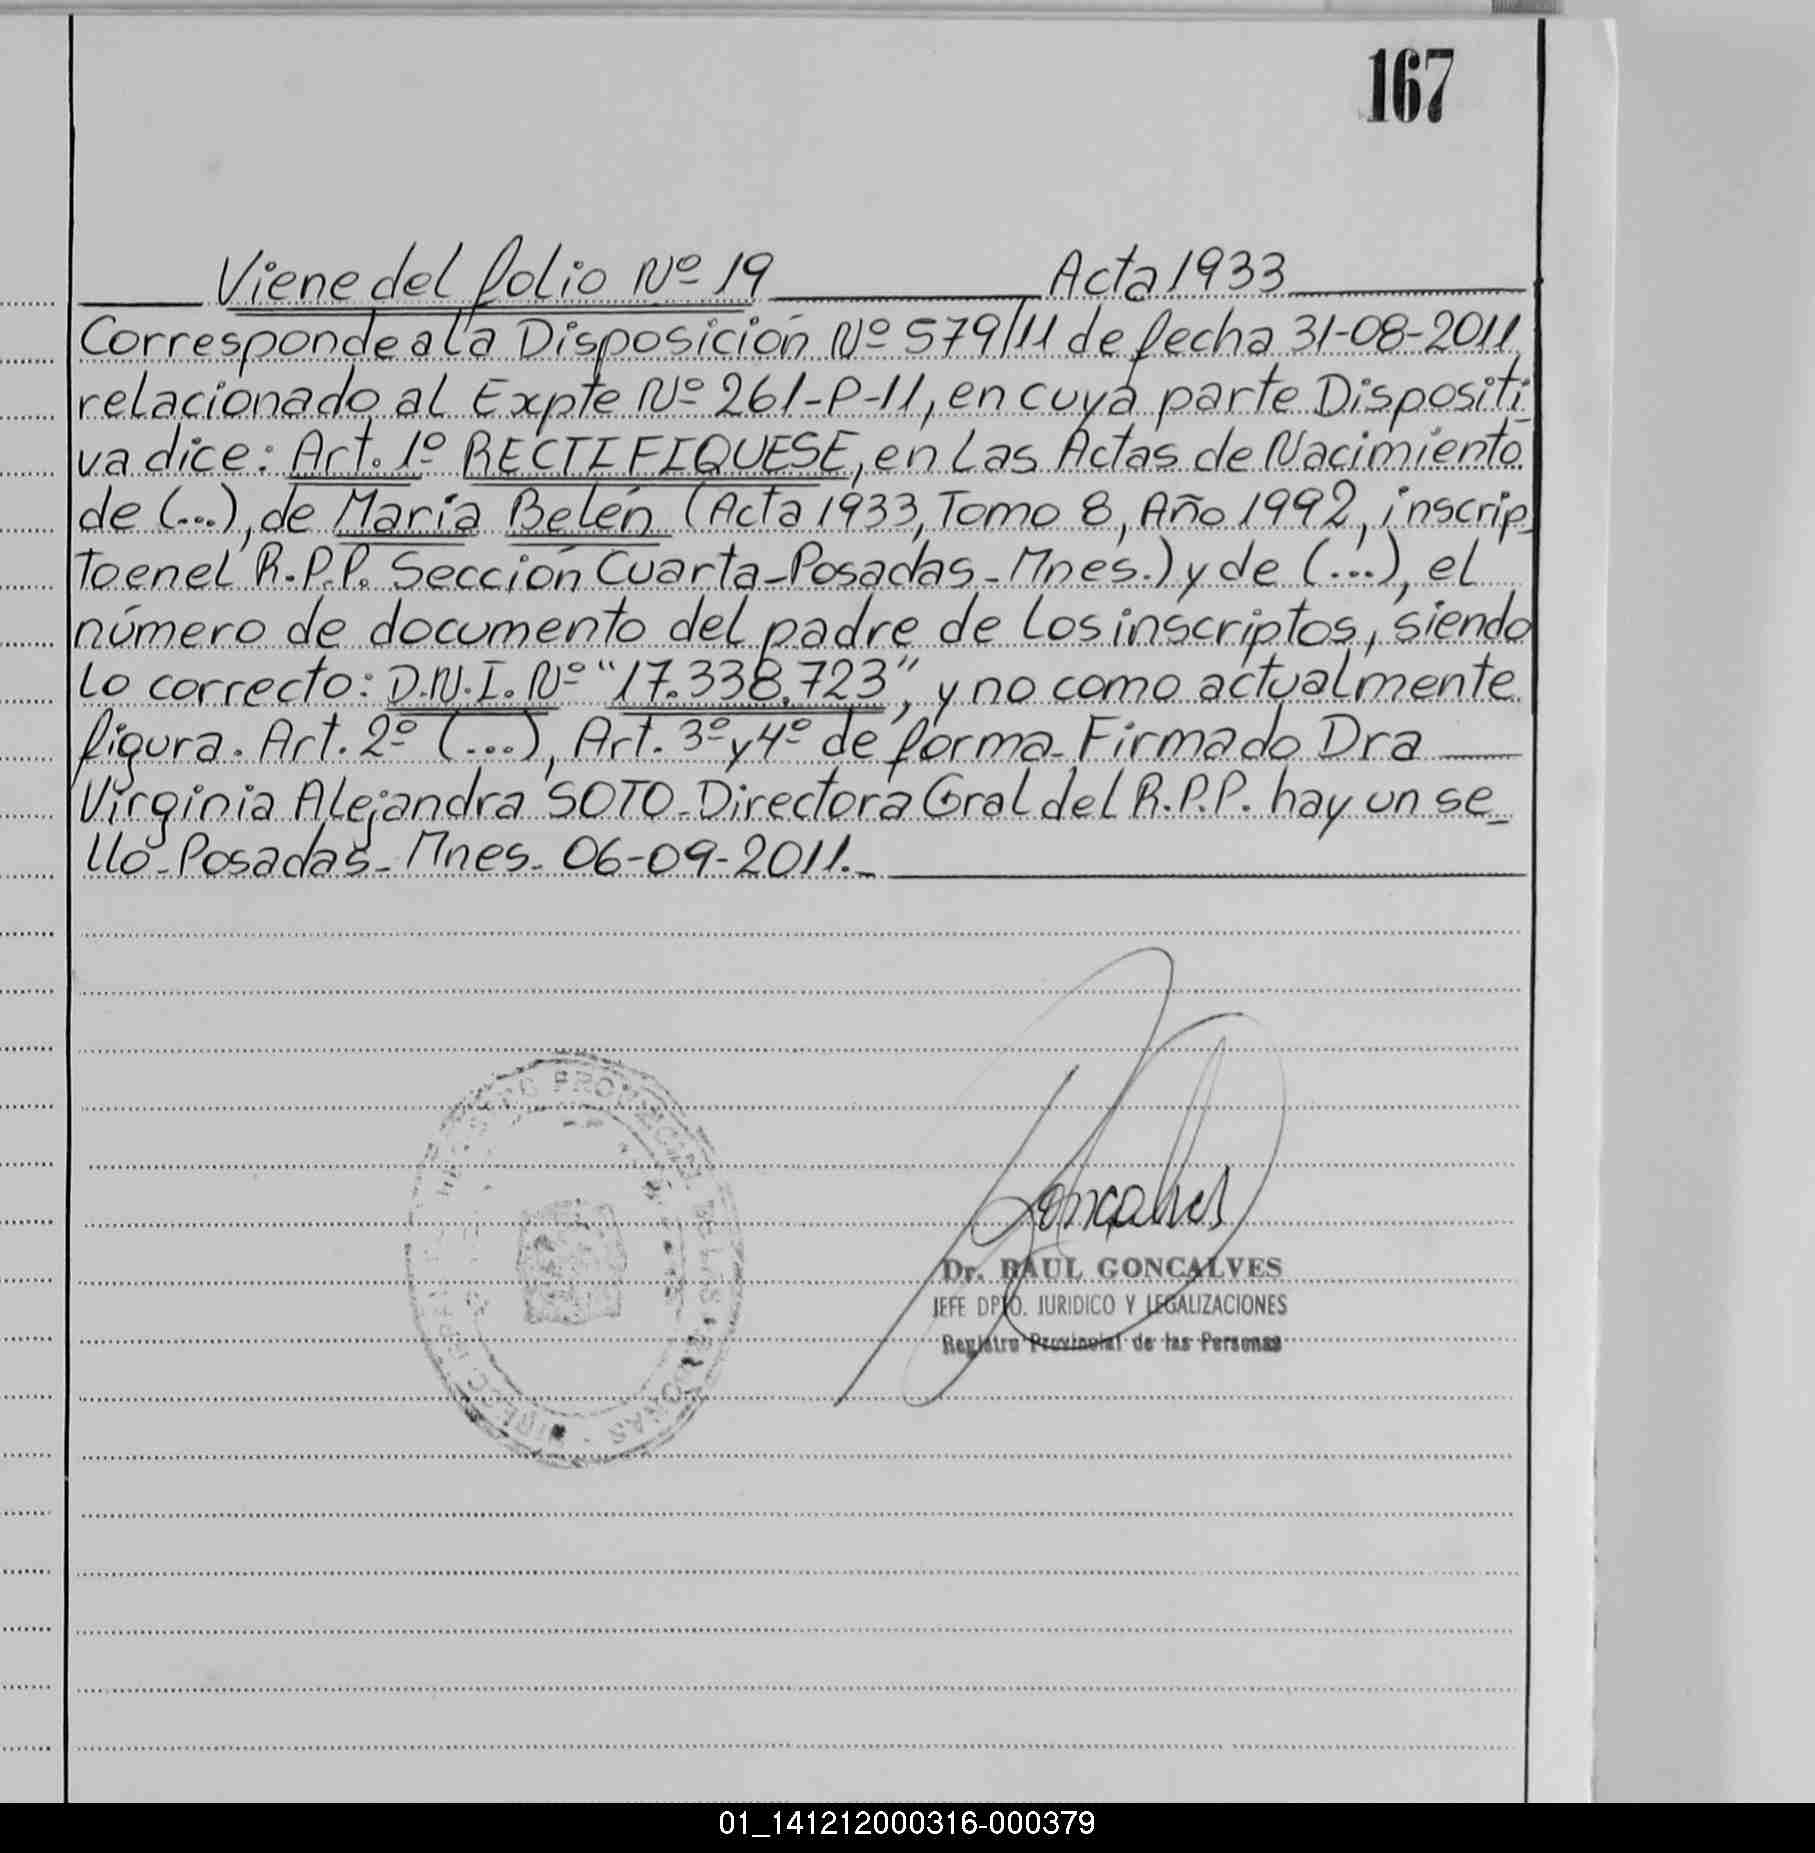 167
Viene del folio Nº 19 Acta 1933
Corresponde a la Disposición Nº 579/11 de fecha 31-08-2011,
relacionado al Expte Nº 261-P-11, en cuya parte Dispositi-
va dice: Art. 1º RECTIFIQUESE, en las Actas de Nacimiento
de (...), de María Belén (Acta 1933, Tomo 8, Año 1992, inscrip-
to en el R.P.P. Sección Cuarta-Posadas-Mnes.) y de (...), el
número de documento del padre de los inscriptos, siendo
lo correcto: D.N.I. Nº "17.338.723", y no como actualmente
figura. Art. 2º (...), Art. 3º y 4º de forma-Firmado Dra
Virginia Alejandra SOTO-Directora Gral del R.P.P. hay un se-
llo-Posadas-Mnes-06-09-2011.-
PROVINCIAL DE LAS PERSONAS
Goncalves
Dr. RAUL GONCALVES
JEFE DPTO. JURIDICO Y LEGALIZACIONES
Registro Provincial de las Personas
01_141212000316-000379